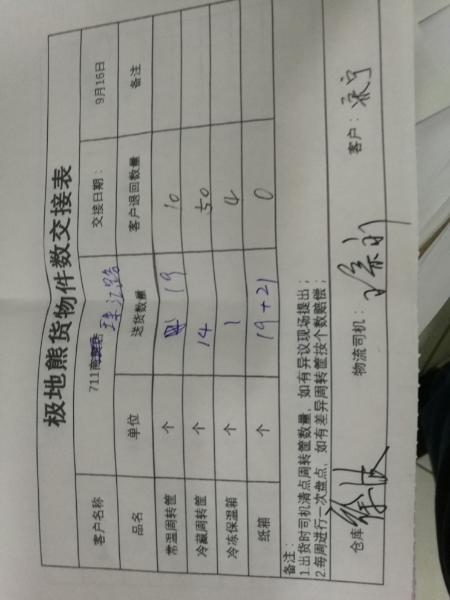 极地熊货物件数交接表
客户名称 711南 珠江路 交接日期： 9月16日
品名 单位 送货数量 客户退回数量 备注
常温周转筐 个 19 10
冷藏周转筐 个 14 50
冷冻保温箱 个 1 4
纸箱 个 19+21 0
备注：
1.出货时司机清点周转筐数量，如有异议现场提出；
2.每周进行一次盘点，如有差异周转筐按个数赔偿；
仓库 物流司机： 客户：